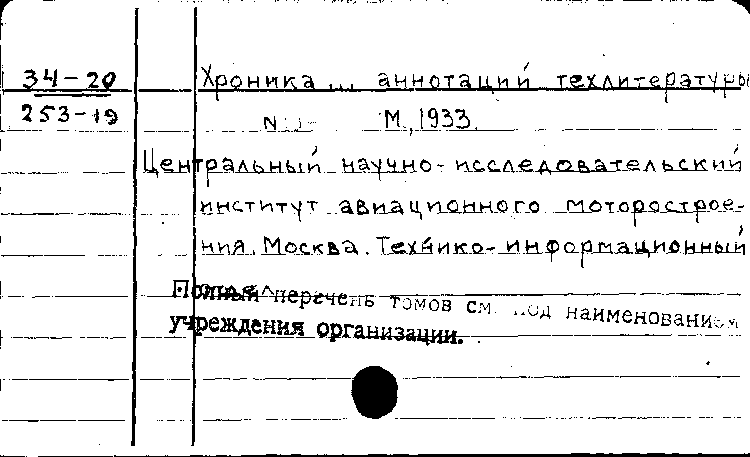 34-20
253-19
Хроника ... аннотаций техлитературы
М., 1933.
Центральный научно-исследовательский
институт авиационного моторострое-
ния. Москва. Технико-информационный
Полный перечень томов см. под наименованием
учреждения организации.